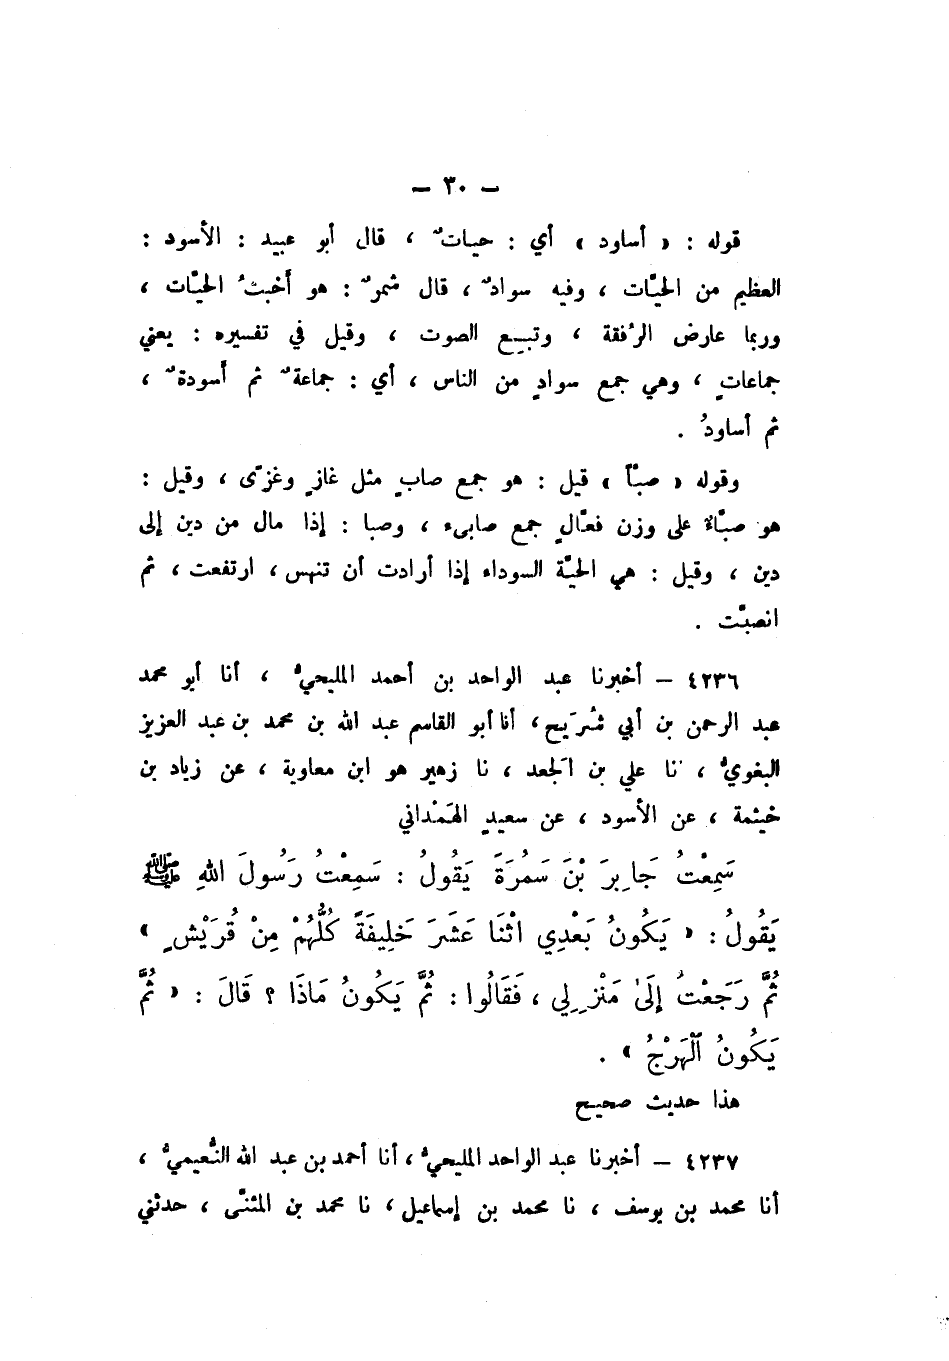 – ٣٠ –
قوله : « أساود » أي : حيات ٌ ، قال أبو عبيد : الأسود :
العظيم من الحيّات ، وفيه سواد ٌ ، قال شمر ٌ : هو أخبث ُ الحيّات ،
وربما عارض الرُفقة ، وتبيع الصوت ، وقيل في تفسيره : يعني
جماعاتٍ ، وهي جمع سوادٍ من الناس ، أي : جماعة ٌ ثم أسودة ٌ ،
ثم أساودُ .
وقوله « صبّاً » قيل : هو جمع صابٍ مثل غازٍ وغزّى ، وقيل :
هو صبّاءٌ على وزن فعّالٍ جمع صابىء ، وصبا : إذا مال من دين إلى
دين ، وقيل : هي الحيّة السوداء إذا أرادت أن تنهس ، ارتفعت ، ثم
انصبّت .
٤٢٣٦ – أخبرنا عبد الواحد بن أحمد المليحيُّ ، أنا أبو محمد
عبد الرحمن بن أبي شُرَيح ، أنا أبو القاسم عبد الله بن محمد بن عبد العزيز
البغويُّ ، نا علي بن الجَعد ، نا زهير هو ابن معاوية ، عن زياد بن
خيثمة ، عن الأسود ، عن سعيدٍ الهَمْداني
سَمِعْتُ جَابِرَ بْنَ سَمُرَةَ يَقُولُ : سَمِعْتُ رَسُولَ اللهِ ﷺ
يَقُولُ : « يَكُونُ بَعْدِي اثْنَا عَشَرَ خَلِيفَةً كُلُّهُمْ مِنْ قُرَيْشٍ »
ثُمَّ رَجَعْتُ إِلَىٰ مَنْزِلِي ، فَقَالُوا : ثُمَّ يَكُونُ مَاذَا ؟ قَالَ : « ثُمَّ
يَكُونُ الْهَرْجُ » .
هذا حديث صحيح
٤٢٣٧ – أخبرنا عبد الواحد المليحيُّ ، أنا أحمد بن عبد الله النُّعيميُّ ،
أنا محمد بن يوسف ، نا محمد بن إسماعيل ، نا محمد بن المثنّى ، حدثني